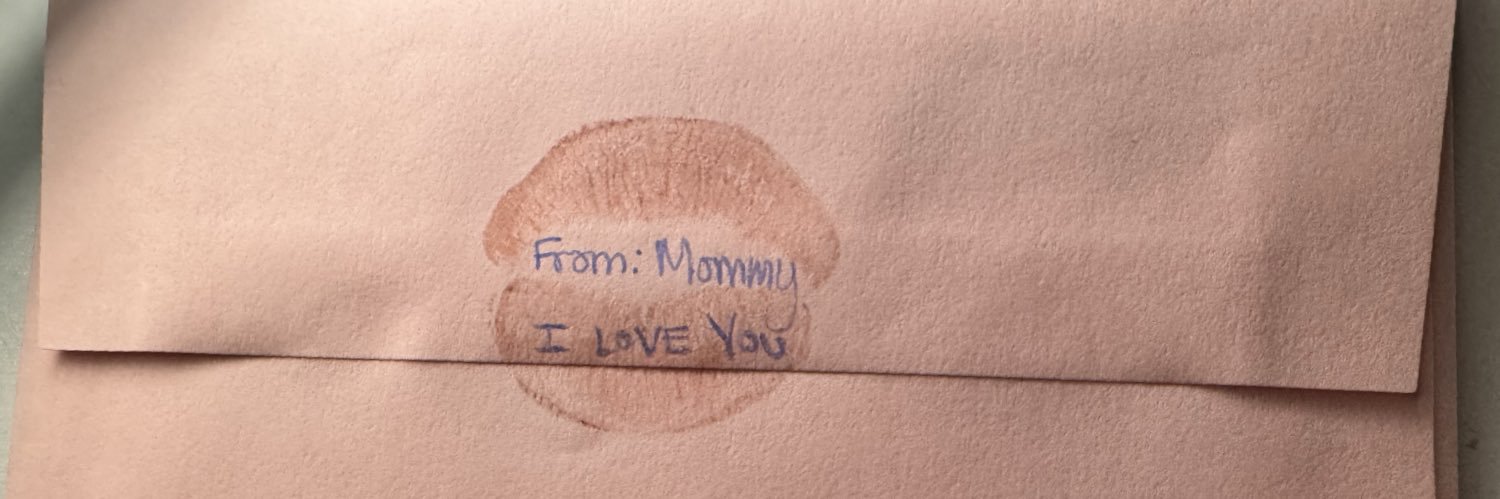 From: Mommy
I LOVE You